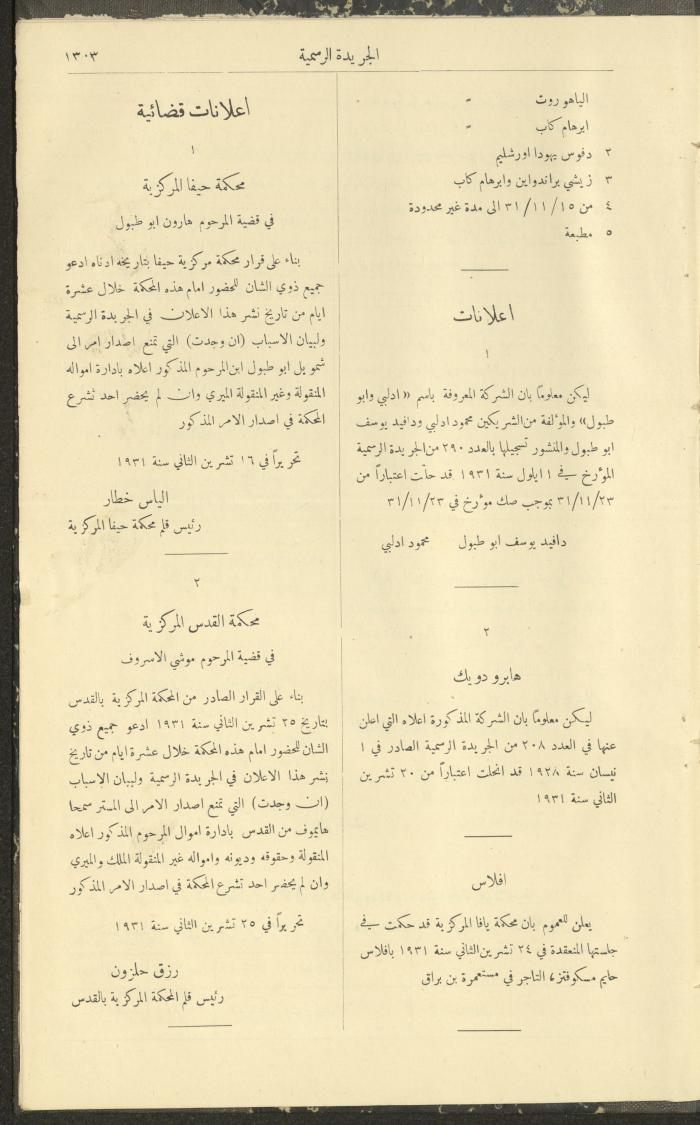 الجريدة الرسمية
١٣٠٣
الياهو روت "
ابرهام كاب "
٢ دفوس يهودا اورشليم
٣ زيشي براندواين وابرهام كاب
٤ من ٣١/١١/١٥ الى مدة غير محدودة
٥ مطبعة
اعلانات
١
ليكن معلوماً بان الشركة المعروفة باسم «ادلبي وابو
طبول» والمؤلفة من الشريكين محمود ادلبي ودافيد يوسف
ابو طبول والمنشور تسجيلها بالعدد ٢٩٠ من الجريدة الرسمية
المؤرخ في ١ ايلول سنة ١٩٣١ قد حلّت اعتباراً من
٣١/١١/٢٣ بموجب صك مؤرخ في ٣١/١١/٢٣
دافيد يوسف ابو طبول محمود ادلبي
٢
هابرو دويك
ليكن معلوماً بان الشركة المذكورة اعلاه التي اعلن
عنها في العدد ٢٠٨ من الجريدة الرسمية الصادر في ١
نيسان سنة ١٩٢٨ قد انحلت اعتباراً من ٢٠ تشرين
الثاني سنة ١٩٣١
افلاس
يعلن للعموم بان محكمة يافا المركزية قد حكمت في
جلستها المنعقدة في ٢٤ تشرين الثاني سنة ١٩٣١ بافلاس
حايم مسكوفتز، التاجر في مستعمرة بن براق
اعلانات قضائية
١
محكمة حيفا المركزية
في قضية المرحوم هارون ابو طبول
بناء على قرار محكمة مركزية حيفا بتاريخه ادناه ادعو
جميع ذوي الشان للحضور امام هذه المحكمة خلال عشرة
ايام من تاريخ نشر هذا الاعلان في الجريدة الرسمية
ولبيان الاسباب (ان وجدت) التي تمنع اصدار امر الى
شمويل ابو طبول ابن المرحوم المذكور اعلاه بادارة امواله
المنقولة وغير المنقولة الميري وان لم يحضر احد تشرع
المحكمة في اصدار الامر المذكور
تحريراً في ١٦ تشرين الثاني سنة ١٩٣١
الياس خطار
رئيس قلم محكمة حيفا المركزية
٢
محكمة القدس المركزية
في قضية المرحوم موشي الاسروف
بناء على القرار الصادر من المحكمة المركزية بالقدس
بتاريخ ٢٥ تشرين الثاني سنة ١٩٣١ ادعو جميع ذوي
الشان للحضور امام هذه المحكمة خلال عشرة ايام من تاريخ
نشر هذا الاعلان في الجريدة الرسمية ولبيان الاسباب
(ان وجدت) التي تمنع اصدار الامر الى المستر سمحا
هايموف من القدس بادارة اموال المرحوم المذكور اعلاه
المنقولة وحقوقه وديونه وامواله غير المنقولة الملك والميري
وان لم يحضر احد تشرع المحكمة في اصدار الامر المذكور
تحريراً في ٢٥ تشرين الثاني سنة ١٩٣١
رزق حلزون
رئيس قلم المحكمة المركزية بالقدس